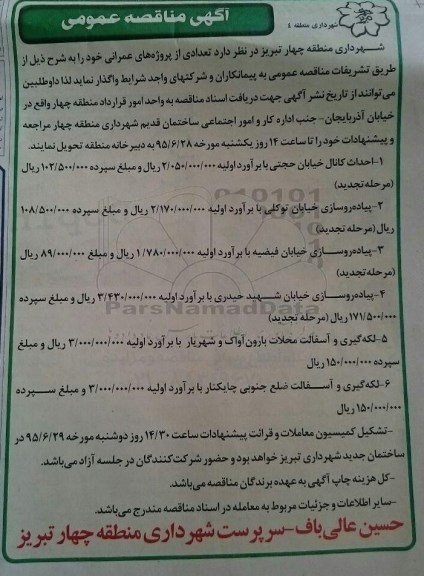 آگهی مناقصه عمومی
شهرداری منطقه ٤
شهرداری منطقه چهار تبریز در نظر دارد تعدادی از پروژه‌های عمرانی خود را به شرح ذیل از
طریق تشریفات مناقصه عمومی به پیمانکاران و شرکتهای واجد شرایط واگذار نماید لذا داوطلبین
می‌توانند از تاریخ نشر آگهی جهت دریافت اسناد مناقصه به واحد امور قرارداد منطقه چهار واقع در
خیابان آذربایجان - جنب اداره کار و امور اجتماعی ساختمان قدیم شهرداری منطقه چهار مراجعه
و پیشنهادات خود را تا ساعت ۱۴ روز یکشنبه مورخه ۹۵/۶/۲۸ به دبیرخانه منطقه تحویل نمایند.
۱-احداث کانال خیابان حجتی با برآورد اولیه ۲/۰۵۰/۰۰۰/۰۰۰ ریال و مبلغ سپرده ۱۰۲/۵۰۰/۰۰۰ ریال
(مرحله تجدید)
۲-پیاده‌روسازی خیابان توکلی با برآورد اولیه ۲/۱۷۰/۰۰۰/۰۰۰ ریال و مبلغ سپرده ۱۰۸/۵۰۰/۰۰۰
ریال (مرحله تجدید)
۳-پیاده‌روسازی خیابان فیضیه با برآورد اولیه ۱/۷۸۰/۰۰۰/۰۰۰ ریال و مبلغ ۸۹/۰۰۰/۰۰۰ ریال
(مرحله تجدید)
۴-پیاده‌روسازی خیابان شهید حیدری با برآورد اولیه ۳/۴۳۰/۰۰۰/۰۰۰ ریال و مبلغ سپرده
۱۷۱/۵۰۰/۰۰۰ ریال (مرحله تجدید)
ParsNamadData
۵-لکه‌گیری و آسفالت محلات بازون آواک و شهریار با برآورد اولیه ۳/۰۰۰/۰۰۰/۰۰۰ ریال و مبلغ
سپرده ۱۵۰/۰۰۰/۰۰۰ ریال
۶-لکه‌گیری و آسفالت ضلع جنوبی چایکنار با برآورد اولیه ۳/۰۰۰/۰۰۰/۰۰۰ و مبلغ سپرده
۱۵۰/۰۰۰/۰۰۰ ریال
-تشکیل کمیسیون معاملات و قرائت پیشنهادات ساعت ۱۴/۳۰ روز دوشنبه مورخه ۹۵/۶/۲۹ در
ساختمان جدید شهرداری تبریز خواهد بود و حضور شرکت‌کنندگان در جلسه آزاد می‌باشد.
-کل هزینه چاپ آگهی به عهده برندگان مناقصه می‌باشد.
-سایر اطلاعات و جزئیات مربوط به معامله در اسناد مناقصه مندرج می‌باشد.
حسین عالی‌باف-سرپرست شهرداری منطقه چهار تبریز